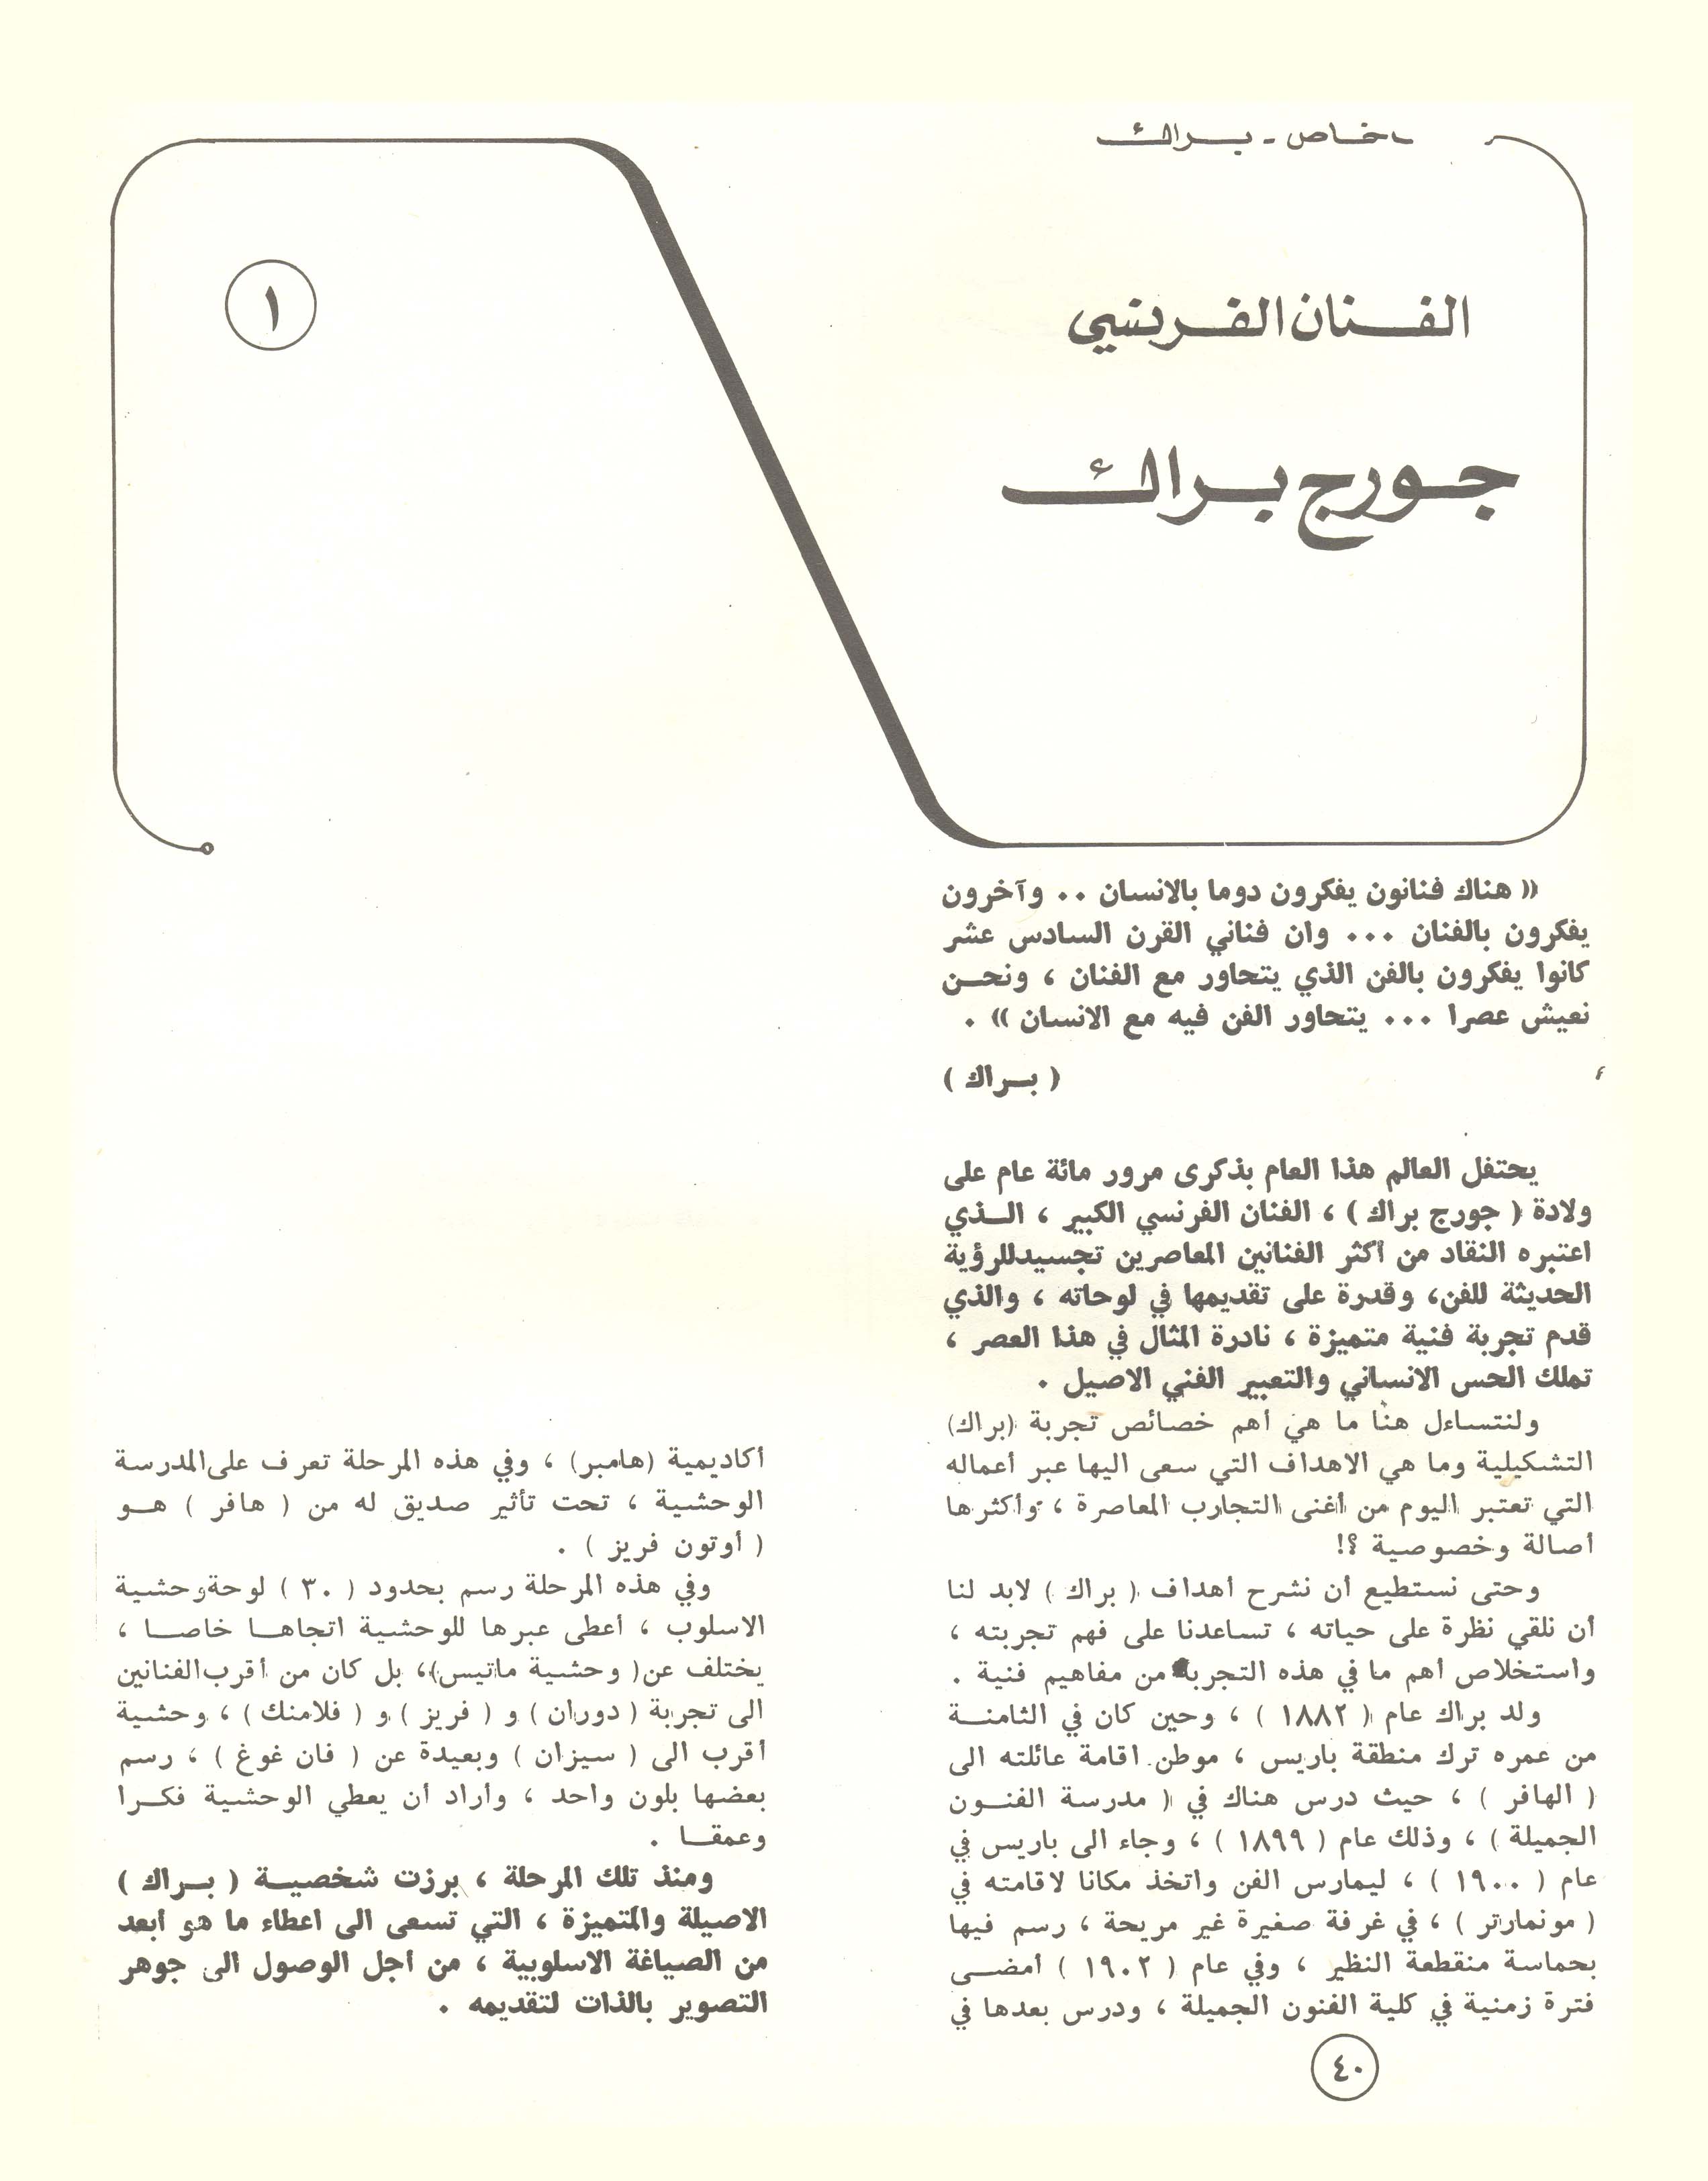 خاص - براك
الفنان الفرنسي
جورج براك
١
« هناك فنانون يفكرون دوما بالانسان .. وآخرون
يفكرون بالفنان ... وان فناني القرن السادس عشر
كانوا يفكرون بالفن الذي يتحاور مع الفنان ، ونحن
نعيش عصرا ... يتحاور الفن فيه مع الانسان » .
( براك )
يحتفل العالم هذا العام بذكرى مرور مائة عام على
ولادة ( جورج براك ) ، الفنان الفرنسي الكبير ، الذي
اعتبره النقاد من أكثر الفنانين المعاصرين تجسيدللرؤية
الحديثة للفن، وقدرة على تقديمها في لوحاته ، والذي
قدم تجربة فنية متميزة ، نادرة المثال في هذا العصر ،
تملك الحس الانساني والتعبير الفني الاصيل .
ولنتساءل هنا ما هي أهم خصائص تجربة (براك)
التشكيلية وما هي الاهداف التي سعى اليها عبر أعماله
التي تعتبر اليوم من أغنى التجارب المعاصرة ، وأكثرها
أصالة وخصوصية ؟!
وحتى نستطيع أن نشرح أهداف ( براك ) لابد لنا
أن نلقي نظرة على حياته ، تساعدنا على فهم تجربته ،
واستخلاص أهم ما في هذه التجربة من مفاهيم فنية .
ولد براك عام ( ١٨٨٢ ) ، وحين كان في الثامنة
من عمره ترك منطقة باريس ، موطن اقامة عائلته الى
( الهافر ) ، حيث درس هناك في ( مدرسة الفنون
الجميلة ) ، وذلك عام ( ١٨٩٩ ) ، وجاء الى باريس في
عام ( ١٩٠٠ ) ، ليمارس الفن واتخذ مكانا لاقامته في
( مونمارتر ) ، في غرفة صغيرة غير مريحة ، رسم فيها
بحماسة منقطعة النظير ، وفي عام ( ١٩٠٢ ) أمضى
فترة زمنية في كلية الفنون الجميلة ، ودرس بعدها في
أكاديمية (هامبر) ، وفي هذه المرحلة تعرف على المدرسة
الوحشية ، تحت تأثير صديق له من ( هافر ) هو
( أوتون فريز ) .
وفي هذه المرحلة رسم بحدود ( ٣٠ ) لوحة وحشية
الاسلوب ، أعطى عبرها للوحشية اتجاها خاصا ،
يختلف عن( وحشية ماتيس)، بل كان من أقرب الفنانين
الى تجربة ( دوران ) و ( فريز ) و ( فلامنك ) ، وحشية
أقرب الى ( سيزان ) وبعيدة عن ( فان غوغ ) ، رسم
بعضها بلون واحد ، وأراد أن يعطي الوحشية فكرا
وعمقا .
ومنذ تلك المرحلة ، برزت شخصية ( براك )
الاصيلة والمتميزة ، التي تسعى الى اعطاء ما هو أبعد
من الصياغة الاسلوبية ، من أجل الوصول الى جوهر
التصوير بالذات لتقديمه .
٤٠